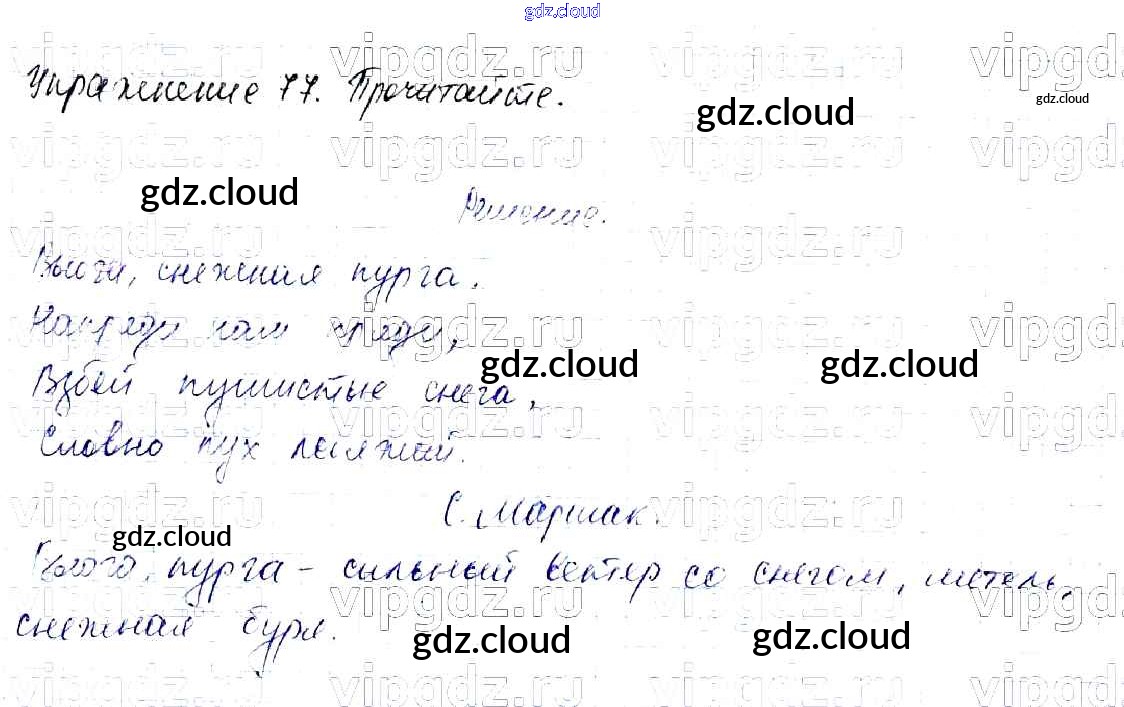 gdz.cloud
Упражнение 77. Прочитайте.
gdz.cloud
gdz.cloud
gdz.cloud
Решение.
Вьюга, снежная пурга,
Напряди нам пряжи,
gdz.cloud
gdz.cloud
Взбей пушистые снега,
Словно пух лебяжий.
С. Маршак.
gdz.cloud
Вьюга, пурга – сильный ветер со снегом, метель,
снежная буря.
gdz.cloud
gdz.cloud
vipgdz.ru